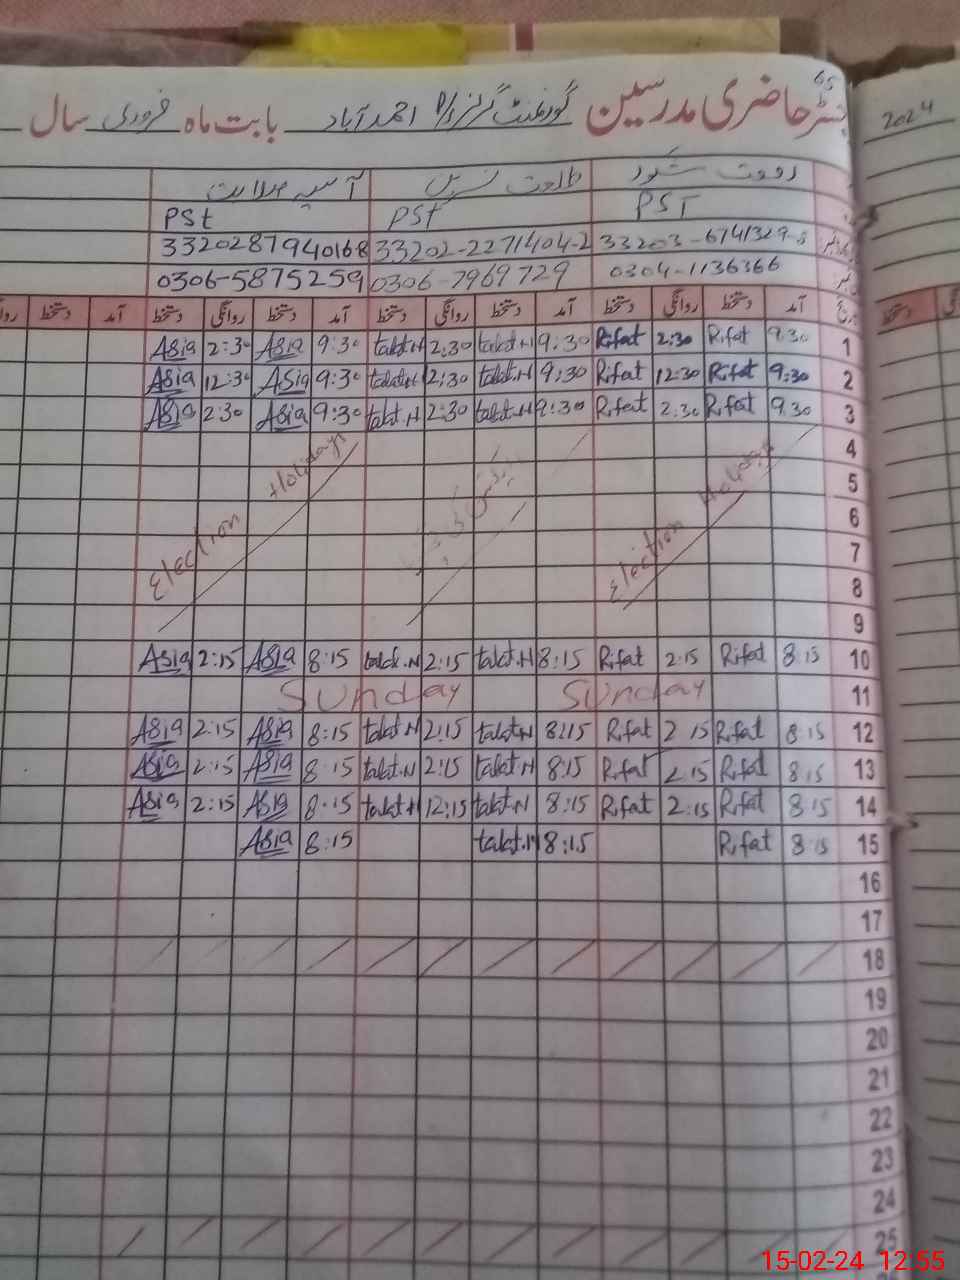 65
رجسٹر حاضری مدرسین گورنمنٹ گرلز احمد آباد بابت ماہ فروری سال
2024
رفعت شکور طلعت نسرین آسیہ
PST PSt PSt
33202-2271404-2 3320287940168
0304-1136366 0306-7969729 0306-5875259
تاریخ آمد دستخط روانگی دستخط آمد دستخط روانگی دستخط آمد دستخط روانگی دستخط آمد دستخط
1 9:30 Rifat 2:30 Rifat 9:30 talat.N 2:30 talat.N 9:30 Asia 2:30 Asia
2 9:30 Rifat 12:30 Rifat 9:30 talat.N 12:30 talat.N 9:30 Asia 12:30 Asia
3 9.30 Rifat 2:30 Rifat 9:30 talat.N 2:30 talat.N 9:30 Asia 2:30 Asia
4
5
6
7
8
9
Election Holidays
Election Holidays
10 8:15 Rifat 2:15 Rifat 8:15 talat.N 2:15 talat.N 8:15 Asia 2:15 Asia
11 Sunday Sunday
12 8:15 Rifat 2:15 Rifat 8:15 talat.N 2:15 talat.N 8:15 Asia 2:15 Asia
13 8:15 Rifat 2:15 Rifat 8:15 talat.N 2:15 talat.N 8:15 Asia 2:15 Asia
14 8:15 Rifat 2:15 Rifat 8:15 talat.N 12:15 talat.N 8:15 Asia 2:15 Asia
15 8:15 Rifat 8:15 talat.N 8:15 Asia
16
17
18
19
20
21
22
23
24
25
15-02-24 12:55